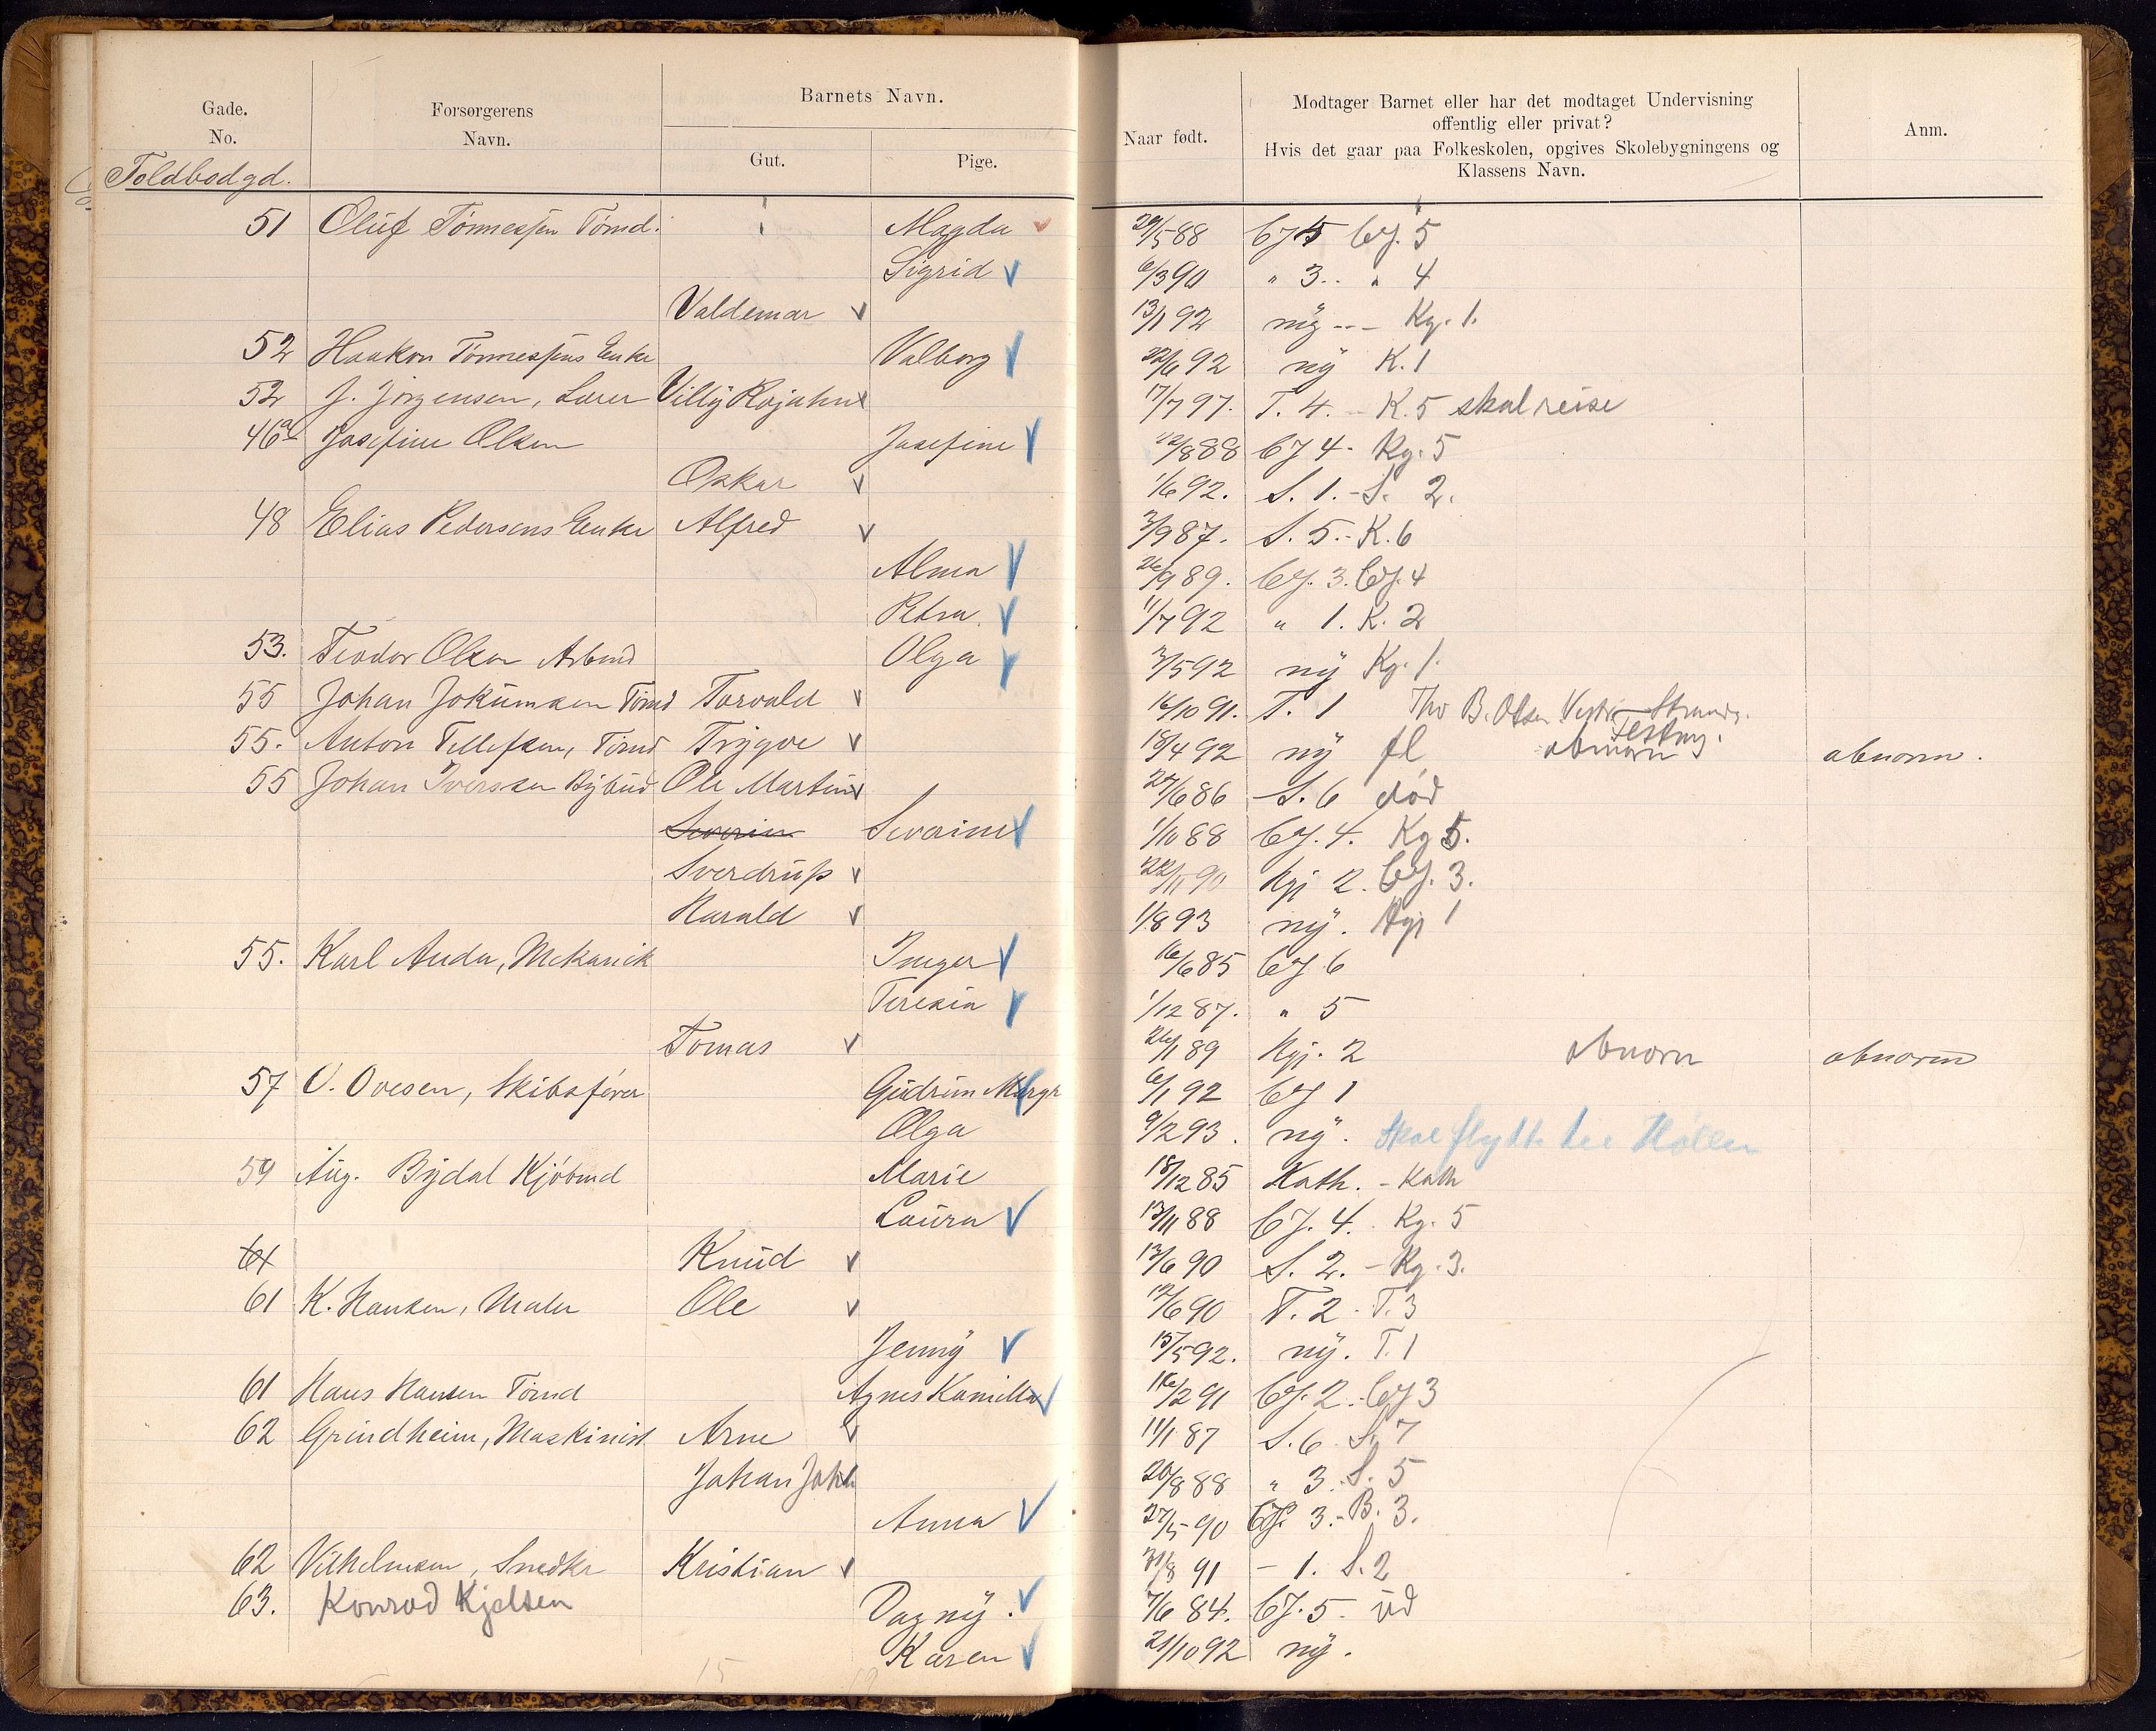 Gade.
No.
Forsørgerens
Navn.
Barnets Navn.
Gut.
Pige.
Naar født.
Modtager Barnet eller har det modtaget Undervisning
offentlig eller privat?
Hvis det gaar paa Folkeskolen, opgives Skolebygningens og
Klassens Navn.
Anm.
Toldbodgd.
51 Oluf Tønnessen Tømd. Magda 29/5 88 5 5
Sigrid 6/3 90 " 3. " 4
Valdemar 13/1 92 ny -- Kg. 1.
52 Haakon Tønnessens Enke Valborg 22/6 92 ny K. 1
52 J. Jørgensen, Lærer Villy Rojahn 17/7 97. T. 4. - K. 5 skal reise
46a Josefine Olsen Josefine 12/8 88 4 - Kg. 5
Oskar 1/6 92. S. 1. - S. 2.
48 Elias Pedersens Enke Alfred 3/9 87. S. 5. - K. 6
Alma 26/9 89. 3. 4
Petra 11/7 92 " 1. K. 2
53. Teodor Olsen Arbmd Olga 3/5 92 ny Kg. 1.
55 Johan Jokumsen Tømd Torvald 16/10 91. T. 1 Tho B. Olsen
55. Anton Tellefsen, Tømd Trygve 18/4 92 ny fl abnorm abnorm.
55 Johan Iversen Bybud Ole Martin 27/6 86 S. 6 død
Severin Severine 1/10 88 4. Kg 5.
Sverdrup 22/11 90 Kg 2. 3.
Harald 1/8 93 ny. Kg 1
55. Karl Anda, Mekanik Inger 16/6 85 6
Teresia 1/12 87. " 5
Tomas 26/1 89 Kg. 2 abnorm abnorm
57 O. Ovesen, Skibsfører Gudrun Margr 6/1 92 1
Olga 9/2 93. ny. Skal flytte til Høllen
59 Aug. Bydal Kjøbmd Marie 18/12 85 Kath. - Kath
Laura 13/11 88 4. Kg. 5
61 Knud 13/6 90 S. 2. - Kg. 3.
61 K. Hansen, Maler Ole 12/6 90 T. 2 - T. 3
Jenny 15/5 92. ny. T. 1
61 Hans Hansen Tømd Agnes Kamilla 16/2 91 2 - 3
62 Grindheim, Maskinist Arne 11/1 87 S. 6 S. 7
Johan Johan 20/8 88 " 3. S. 5
Anna 27/5 90 3. - B. 3.
62 Vilhelmsen, Snedker Kristian 31/8 91 - 1. S. 2
63. Konrad Kjelsen Dagny. 7/6 84. 5 - ud
Karen 21/10 92 ny.